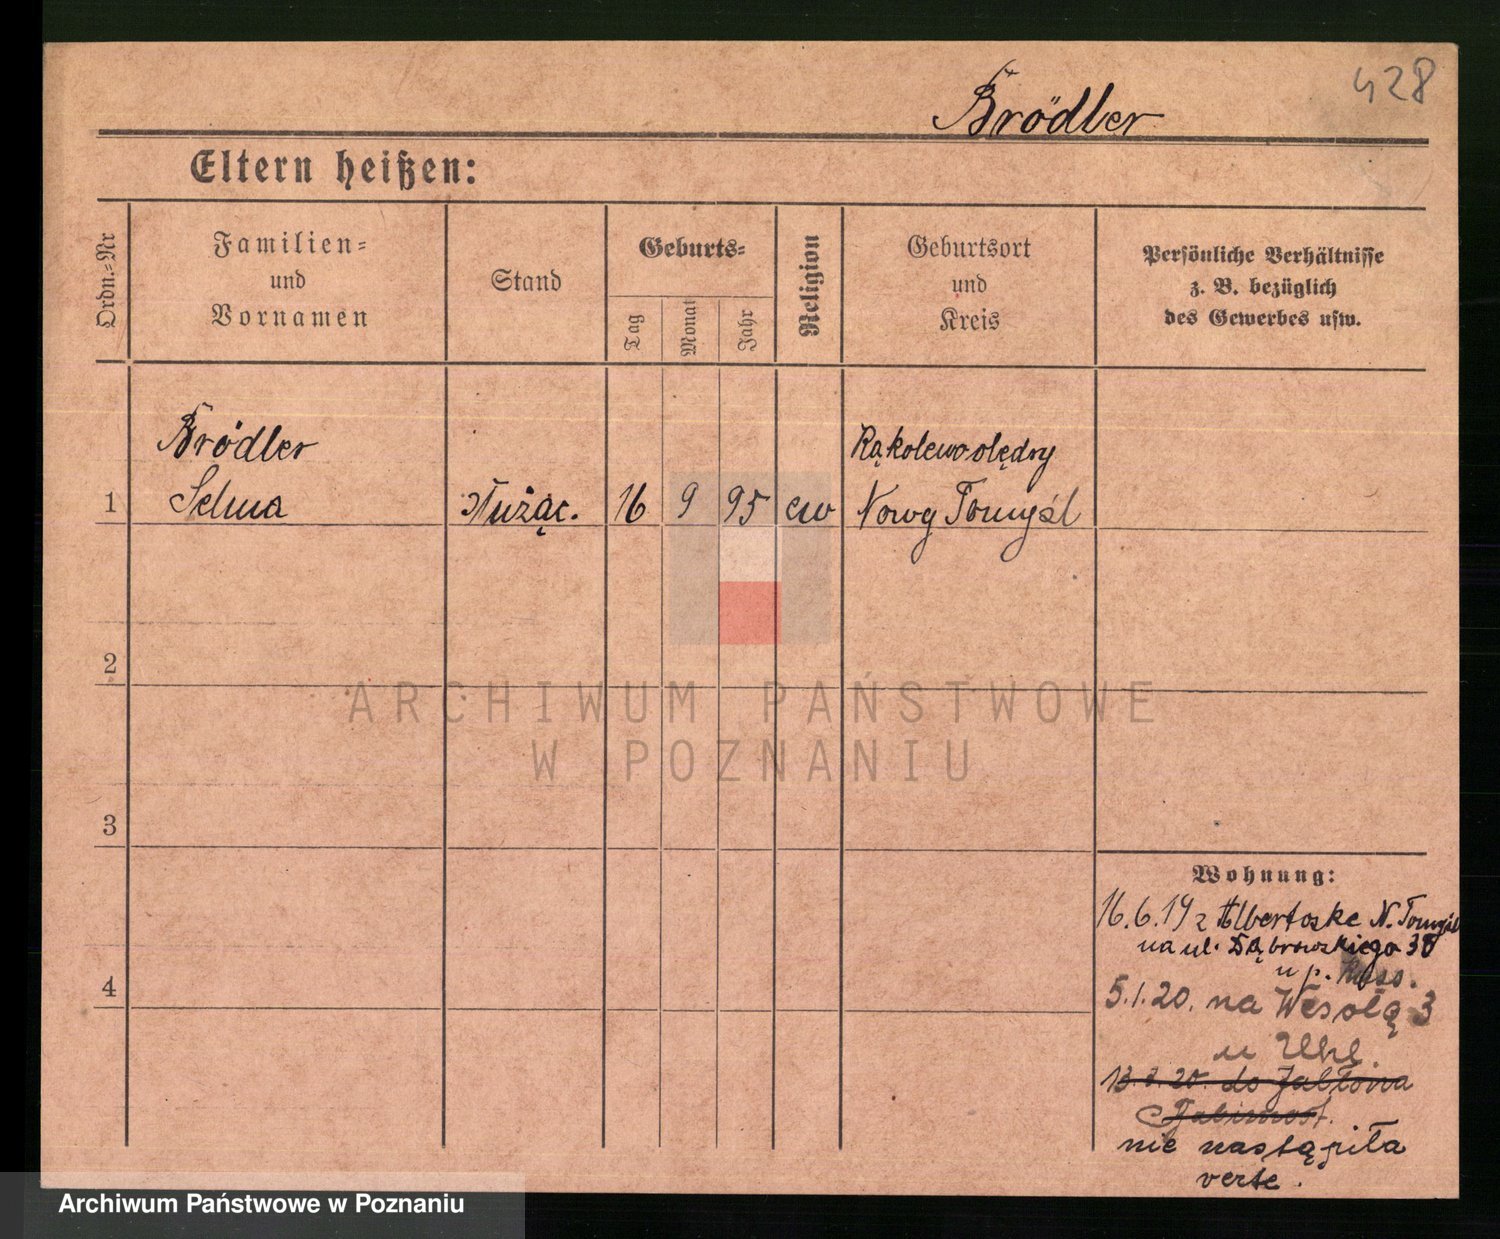 428
Brödler
Eltern heißen:
Ordn.=Nr
Familien=
und
Vornamen
Stand
Geburts=
Tag
Monat
Jahr
Religion
Geburtsort
und
Kreis
Persönliche Verhältnisse
z. B. bezüglich
des Gewerbes usw.
Brödler
Rąkolewo olędry
1 Selma służąc. 16 9 95 ew Nowy Tomyśl
2
ARCHIWUM PAŃSTWOWE
W POZNANIU
3
Wohnung:
16.6.19 z Albertoske N. Tomyśl
na ul. Dąbrowskiego 38
u p.
4
5.1.20. na Wesołą 3
u
20. do Jabłona
nie nastąpiła
verte.
Archiwum Państwowe w Poznaniu